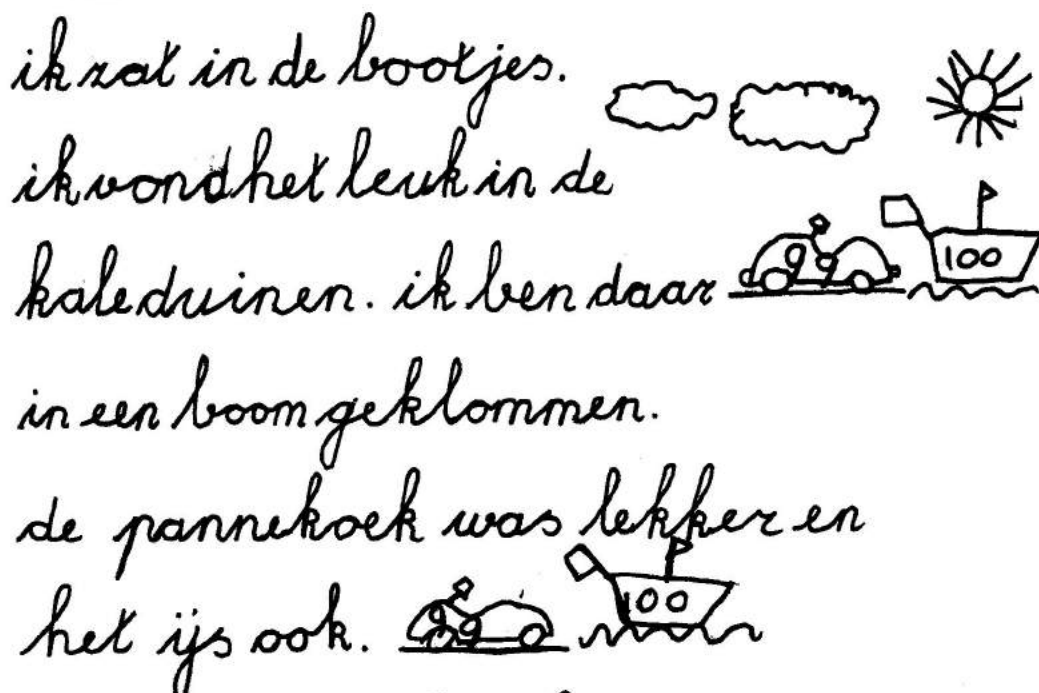 ik zat in de bootjes.
ik vond het leuk in de
kaleduinen. ik ben daar
99 100
in een boom geklommen.
de pannekoek was lekker en
het ijs ook.
99 100